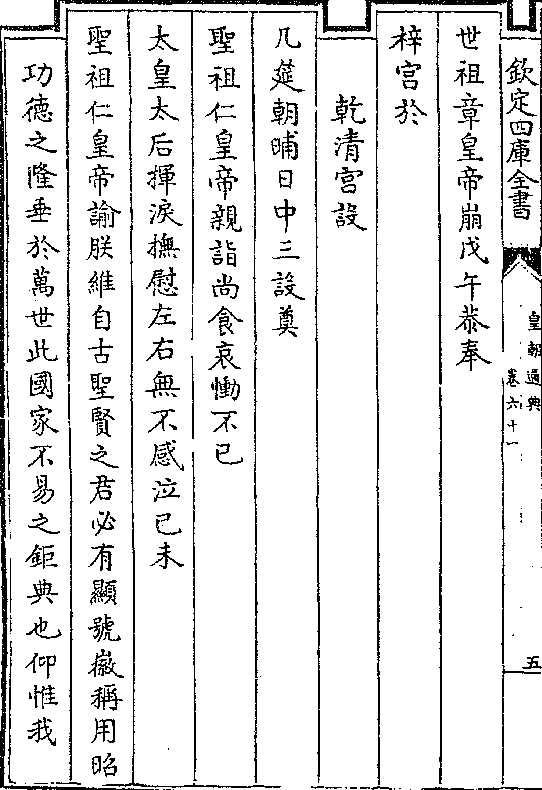 欽定四庫全書
皇朝通典
卷六十一
五
世祖章皇帝崩戊午恭奉
梓宮於
乾清宮設
几筵朝晡日中三設奠
聖祖仁皇帝親詣尚食哀慟不已
太皇太后揮淚撫慰左右無不感泣已未
聖祖仁皇帝諭朕維自古聖賢之君必有顯號徽稱用昭
功德之隆垂於萬世此國家不易之鉅典也仰惟我